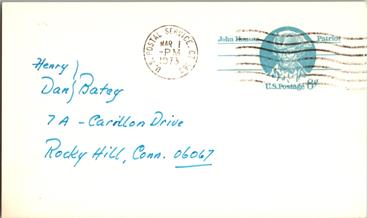 U.S. POSTAL SERVICE, CT
MAR 1
PM
John Hanson
Patriot
U.S. Postage 8¢
Henry }
Dan } Batey
7A - Carillon Drive
Rocky Hill, Conn. 06067